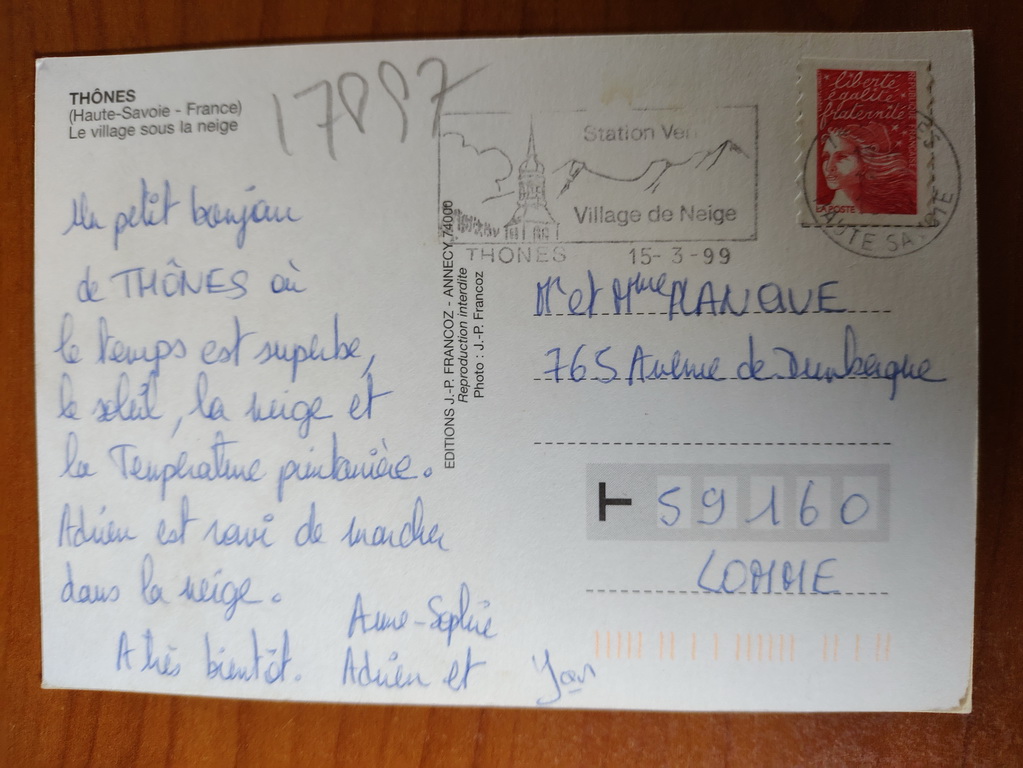 THÔNES
(Haute-Savoie - France)
Le village sous la neige
17897
Un petit bonjour
de THÔNES où
le temps est superbe,
le soleil, la neige et
la Température printanière.
Adrien est ravi de marcher
dans la neige.
A très bientôt.
Anne-Sophie
Adrien et
EDITIONS J.-P. FRANCOZ - ANNECY 74000
Reproduction interdite
Photo : J.-P. Francoz
Station Ver
Village de Neige
THONES 15-3-99
liberté
égalité
fraternité
LA POSTE
Mr et Mme PLANQUE
765 Avenue de Dunkerque
T 59160
LOMME